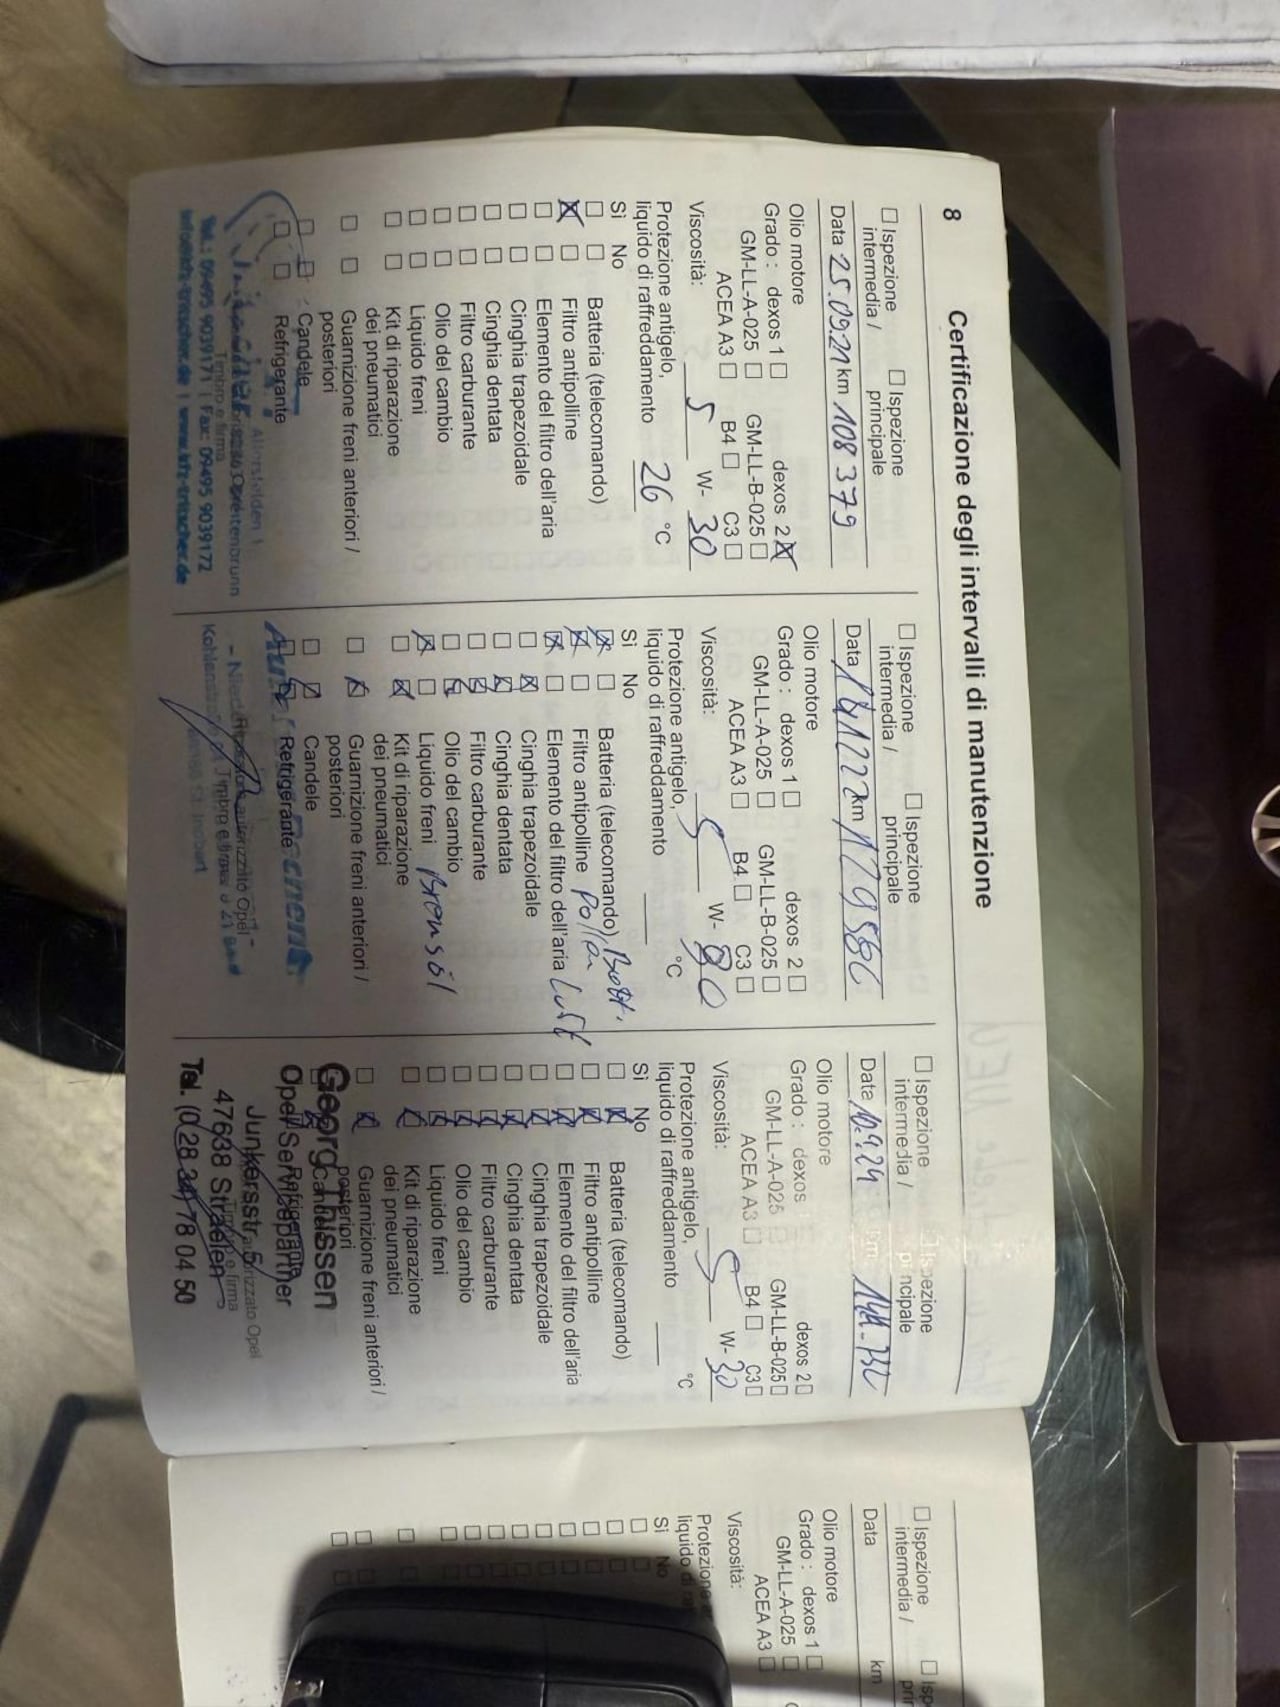 8 Certificazione degli intervalli di manutenzione
Ispezione intermedia /
Ispezione principale
Data 25.09.21 km 108 379
Olio motore
Grado : dexos 1 dexos 2
GM-LL-A-025 GM-LL-B-025
ACEA A3 B4 C3
Viscosità: 5 W- 30
Protezione antigelo,
liquido di raffreddamento 26 °C
Sì No
Batteria (telecomando)
Filtro antipolline
Elemento del filtro dell'aria
Cinghia trapezoidale
Cinghia dentata
Filtro carburante
Olio del cambio
Liquido freni
Kit di riparazione
dei pneumatici
Guarnizione freni anteriori /
posteriori
Candele
Refrigerante
Timbro e firma
Tel.: 09495 9039171 | Fax: 09495 9039172
info@kfz-tritscher.de | www.kfz-tritscher.de
Ispezione intermedia /
Ispezione principale
Data km
Olio motore
Grado : dexos 1 dexos 2
GM-LL-A-025 GM-LL-B-025
ACEA A3 B4 C3
Viscosità: 5 W-
Protezione antigelo,
liquido di raffreddamento °C
Sì No
Batteria (telecomando) Batt.
Filtro antipolline Pollen
Elemento del filtro dell'aria Luft
Cinghia trapezoidale
Cinghia dentata
Filtro carburante
Olio del cambio
Liquido freni Bremsöl
Kit di riparazione
dei pneumatici
Guarnizione freni anteriori /
posteriori
Candele
Refrigerante
Timbro e firma
Ispezione intermedia /
Ispezione principale
Data km
Olio motore
Grado : dexos 1 dexos 2
GM-LL-A-025 GM-LL-B-025
ACEA A3 B4 C3
Viscosità: 5 W- 30
Protezione antigelo,
liquido di raffreddamento °C
Sì No
Batteria (telecomando)
Filtro antipolline
Elemento del filtro dell'aria
Cinghia trapezoidale
Cinghia dentata
Filtro carburante
Olio del cambio
Liquido freni
Kit di riparazione
dei pneumatici
Guarnizione freni anteriori /
posteriori
Candele
Refrigerante
Georg Thissen
Opel Servicepartner
Junkersstr. 5
47638 Straelen
Ispezione intermedia /
Data km
Olio motore
Grado : dexos 1
GM-LL-A-025
ACEA A3
Viscosità:
Protezione
liquido di
Sì No